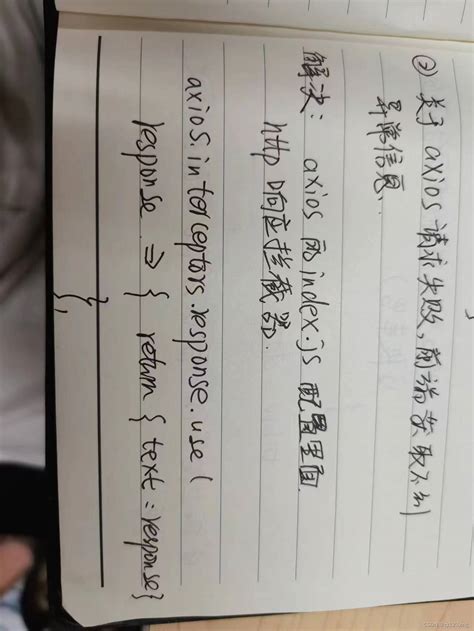 ② 关于 axios 请求失败, 前端获取不到
异常信息.
解决: axios 的 index.js 配置里面
http 响应拦截器.
axios.interceptors.response.use (
response => { return { text : response }
},